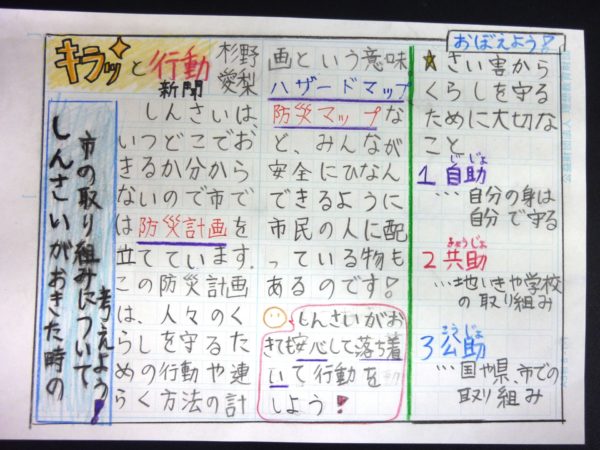 キラッと行動
新聞
杉野
愛梨
しんさいがおきた時の
市の取り組みについて
考えよう！
しんさいは
いつどこでお
きるか分から
ないので市で
は防災計画を
立てています.
この防災計画
は、人々のく
らしを守るた
めの行動や連
らく方法の計
画という意味
ハザードマップ
防災マップな
ど、みんなが
安全にひなん
できるように
市民の人に配
っている物も
あるのです！
しんさいがお
きても安心して落ち着
いて行動を
しよう！
おぼえよう！
☆さい害から
くらしを守る
ために大切な
こと
1 自助
じじょ
… 自分の身は
自分で守る
2 共助
きょうじょ
…地いきや学校
の取り組み
3 公助
こうじょ
… 国や県、市での
取り組み